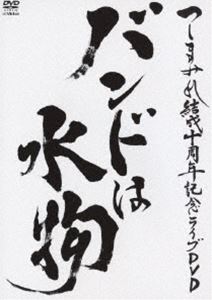 つしまみれ結成十周年記念ライブDVD
バンドは
水物
DVD